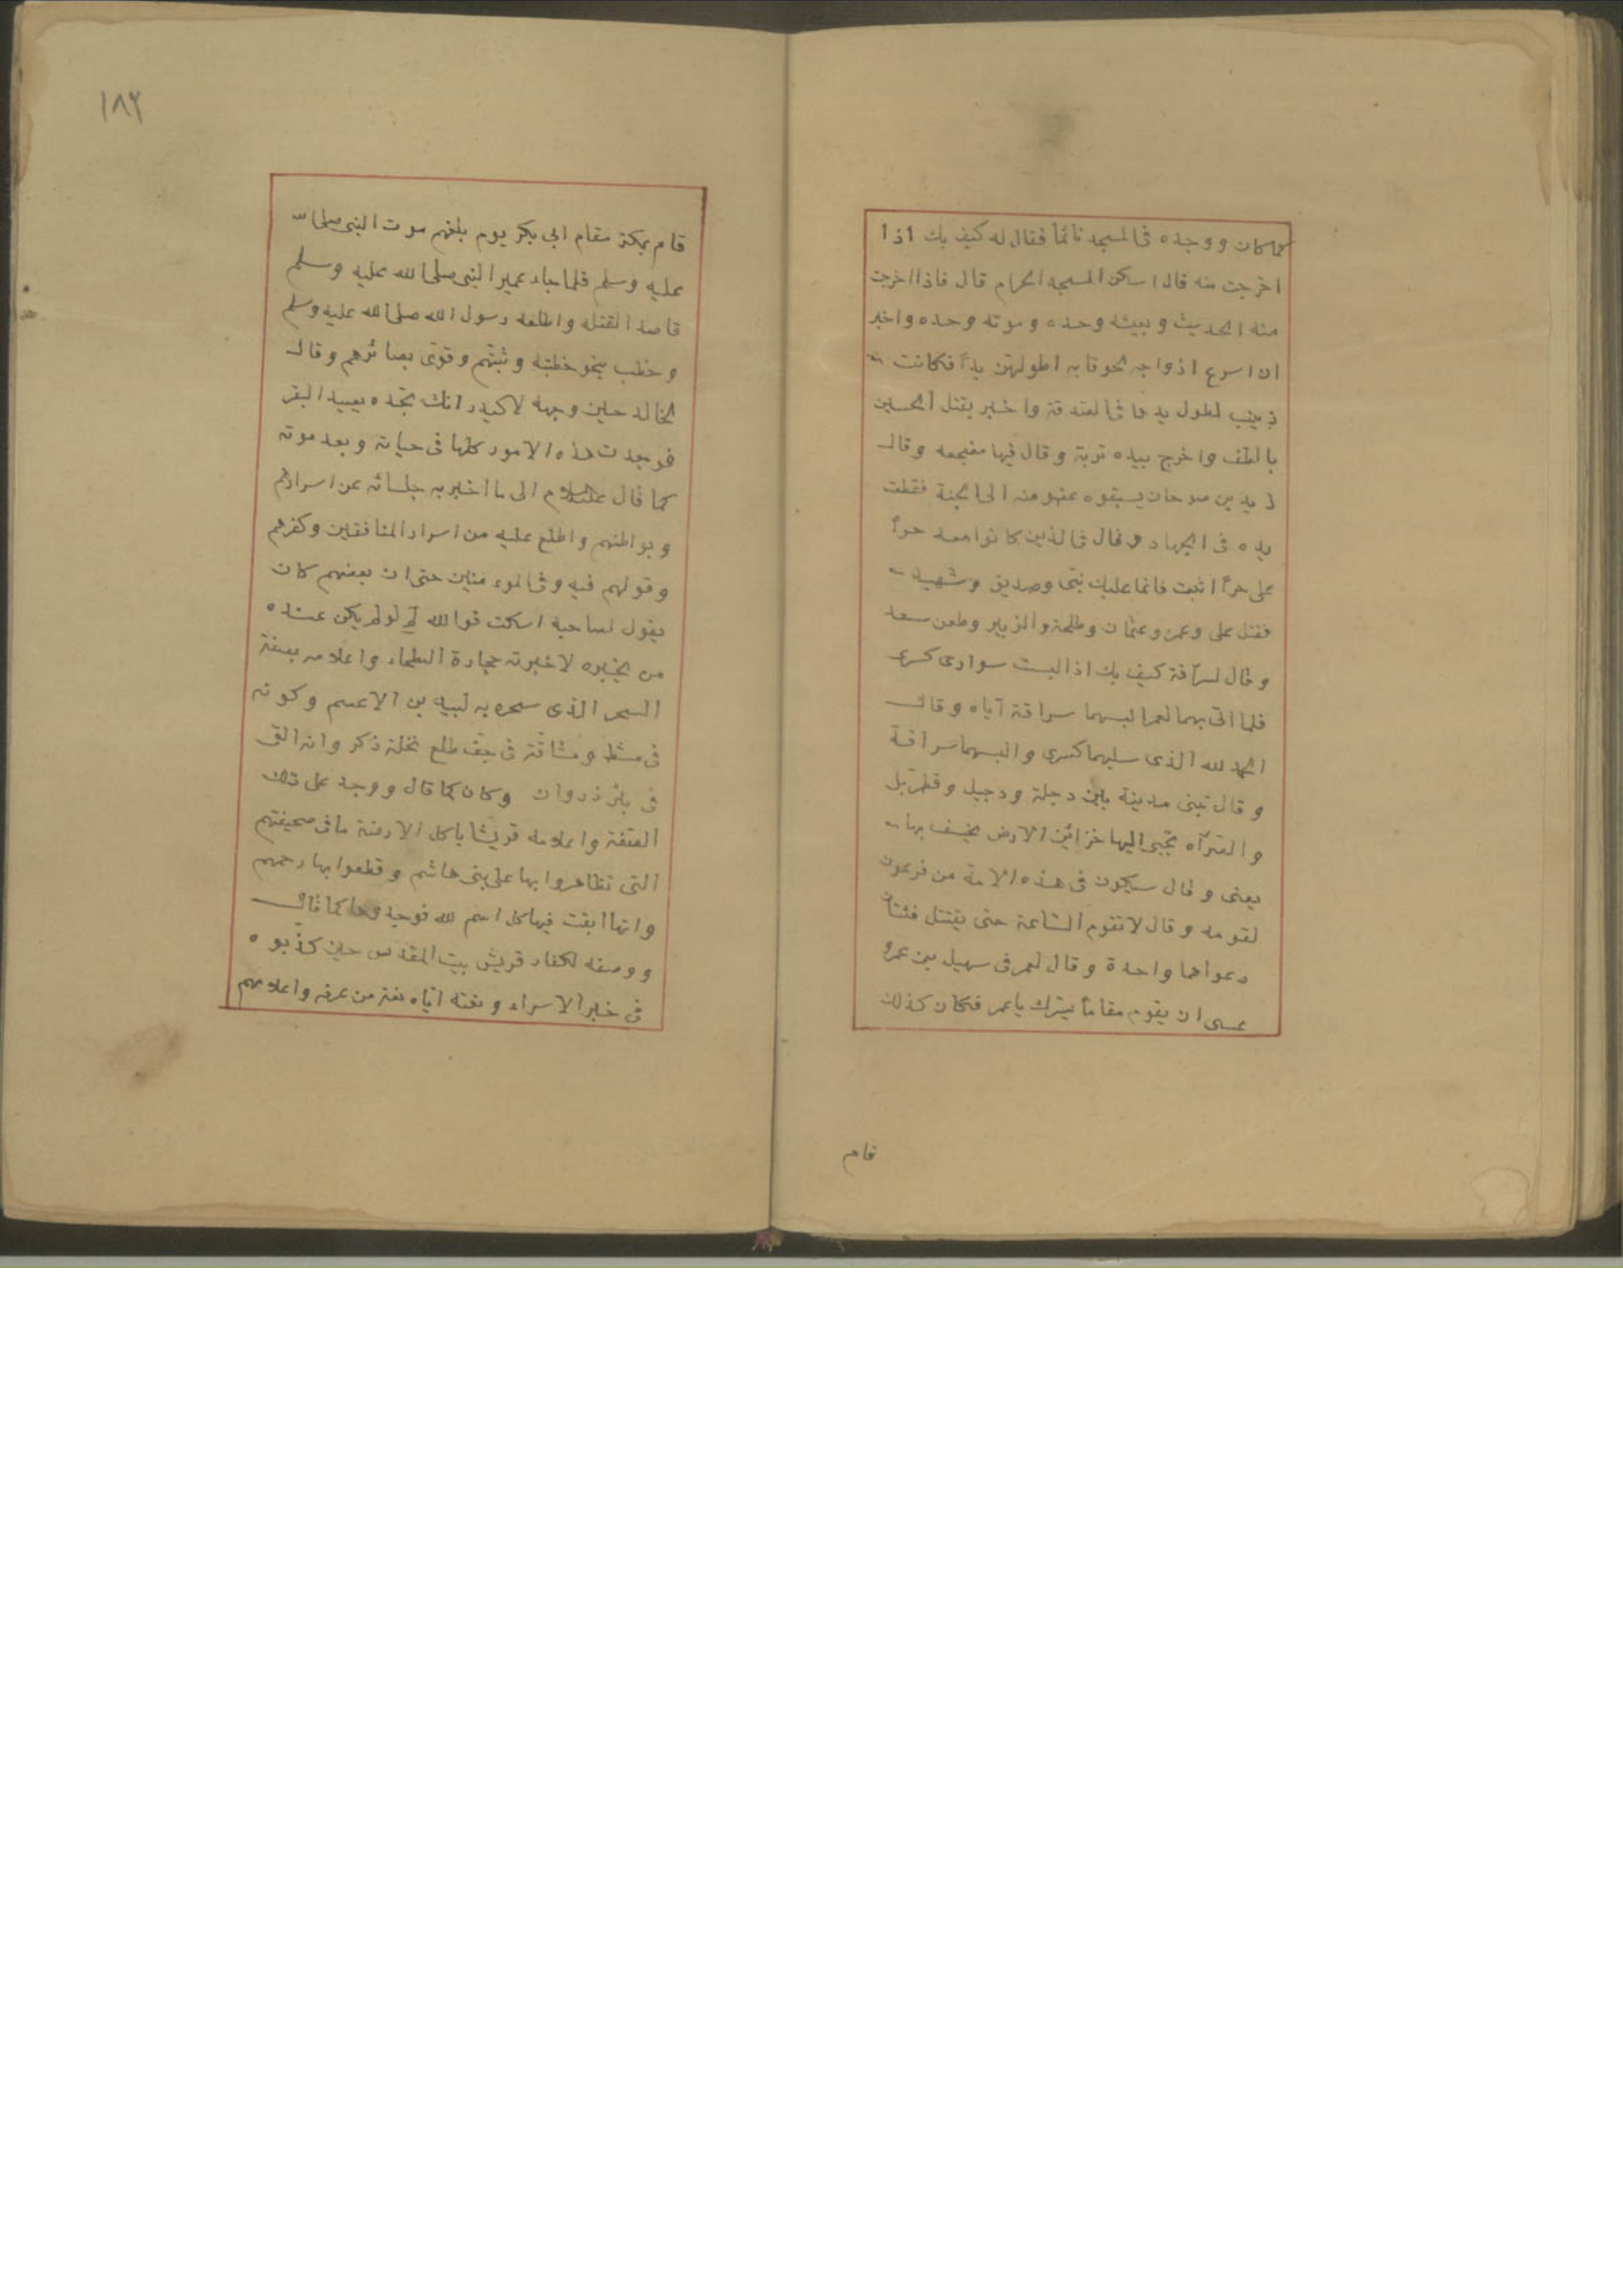 كما كان ووجده فى المسجد نائما فقال له كيف بك اذا
اخرجت منه قال اسكن المسجد الحرام قال فاذا اخرجت
منه الحديث وبيشه وحده وموته وحده واخبر
ان اسرع ازواجه لحوقا به اطولهن يدا فكانت
زينب لطول يدها فى الصدقة واخبر بقتل الحسين
بالطف واخرج بيده تربة وقال فيها مضجعه وقال
زيد بن صوحان يسبقه عضو منه الى الجنة فقطعت
يده فى الجهاد وقال فى الذين كانوا معه حرأ
على حرأ اثبت فانما عليك نبى وصديق وشهيد
فقتل على وعمر وعثمان وطلحة والزبير وطعن سعد
وقال لسراقة كيف بك اذا البست سوارى كسرى
فلما اتى بهما لعمر البسهما سراقة اياه وقال
الحمد لله الذى سلبهما كسرى والبسهما سراقة
وقال تبنى مدينة بين دجلة ودجيل وقطربل
والصراه تجبى اليها خزائن الارض يخسف بها
يعنى وقال سيكون فى هذه الامة من فرعون
لقومه وقال لا تقوم الساعة حتى يقتتل فئتان
دعواهما واحدة وقال لعمر فى سهيل بن عمرو
عسى ان يقوم مقاما يسرك يا عمر فكان كذلك
قام
١٨٢
قام بمكة مقام ابى بكر يوم بلغهم موت النبى صلى الله
عليه وسلم فلما جاء عمير النبى صلى الله عليه وسلم
قاصدا لقتله واطلعه رسول الله صلى الله عليه وسلم
وخطب بنحو خطبته وثبتهم وقوى بصائرهم وقال
لخالد حين وجهه لاكيدر انك تجده يصيد البقر
فوجدت هذه الامور كلها فى حياته وبعد موته
كما قال عليه السلام الى ما اخبر به جلسائه عن اسرارهم
وبواطنهم واطلع عليه من اسرار المنافقين وكفرهم
وقولهم فيه وفى الموءمنين حتى ان بعضهم كان
يقول لصاحبه اسكت فوالله لو لم يكن عنده
من يخبره لاخبرته حجارة البطحاء واعلامه بصفة
السحر الذى سحره به لبيد بن الاعصم وكونه
فى مشط ومشاقة فى جف طلع نخلة ذكر وانه القى
فى بئر ذروان وكان كما قال ووجد على تلك
الصفة واعلامه قريشا باكل الارضة ما فى صحيفتهم
التى تظاهروا بها على بنى هاشم وقطعوا بها رحمهم
وانها ابقت فيها كل اسم لله فوجدوها كما قال
ووصفه لكفار قريش بيت المقدس حين كذبوه
فى خبر الاسراء ونعته اياه نعت من عرفه واعلامهم